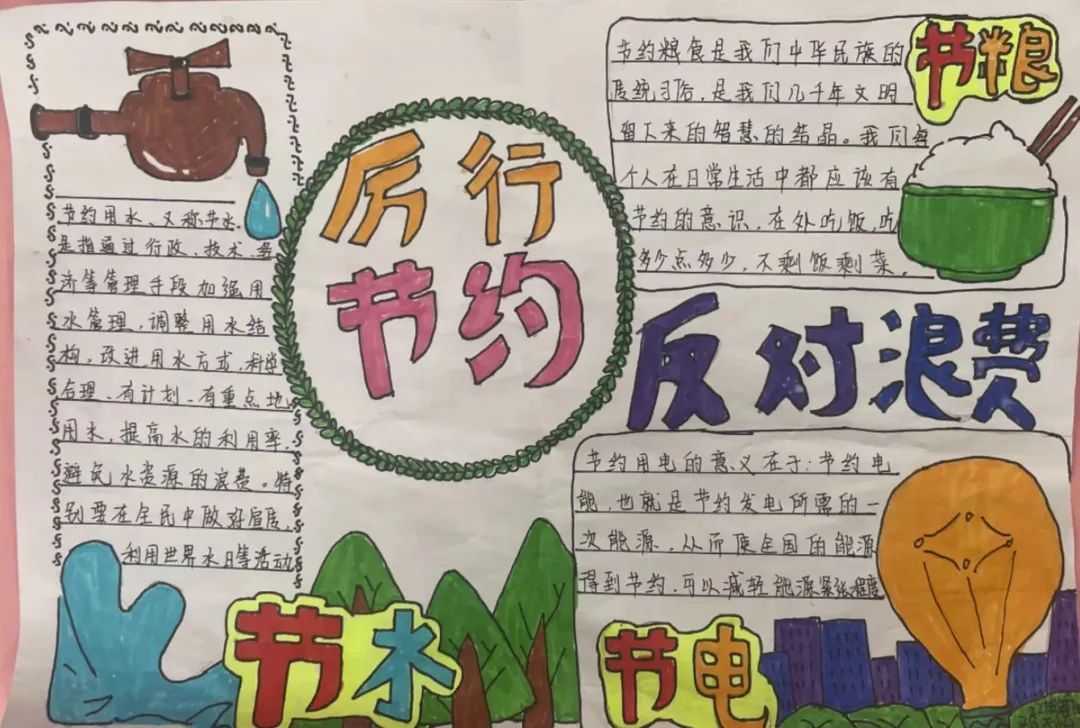 厉行
节约
反对浪费
节约用水、又称节水.
是指通过行政、技术、经
济等管理手段加强用
水管理，调整用水结
构，改进用水方式，科学
合理、有计划、有重点地
用水，提高水的利用率.
避免水资源的浪费。特
别要在全民中做好宣传,
利用世界水日等活动
节水
节粮
节约粮食是我们中华民族的
传统习俗，是我们几千年文明
留下来的智慧的结晶。我们每
个人在日常生活中都应该有
节约的意识，在外吃饭，吃
多少点多少，不剩饭剩菜.
节约用电的意义在于：节约电
能，也就是节约发电所需的一
次能源，从而使全国的能源
得到节约，可以减轻能源紧张程度
节电